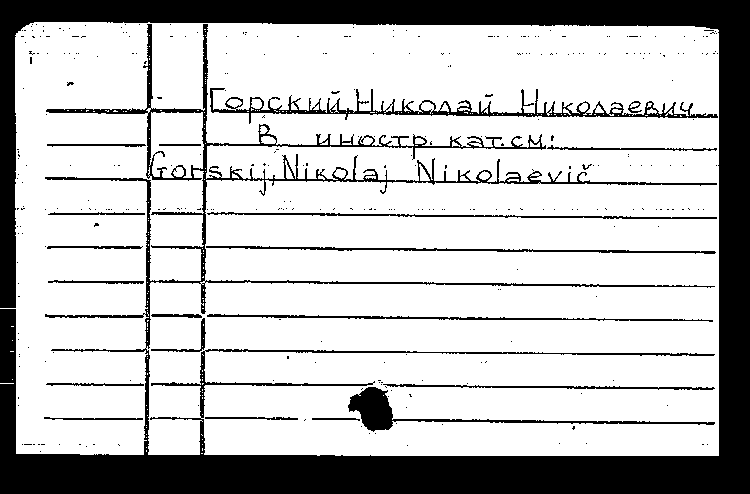 Горский, Николай Николаевич
В иностр. кат. см:
Gorskij, Nikolaj Nikolaevič